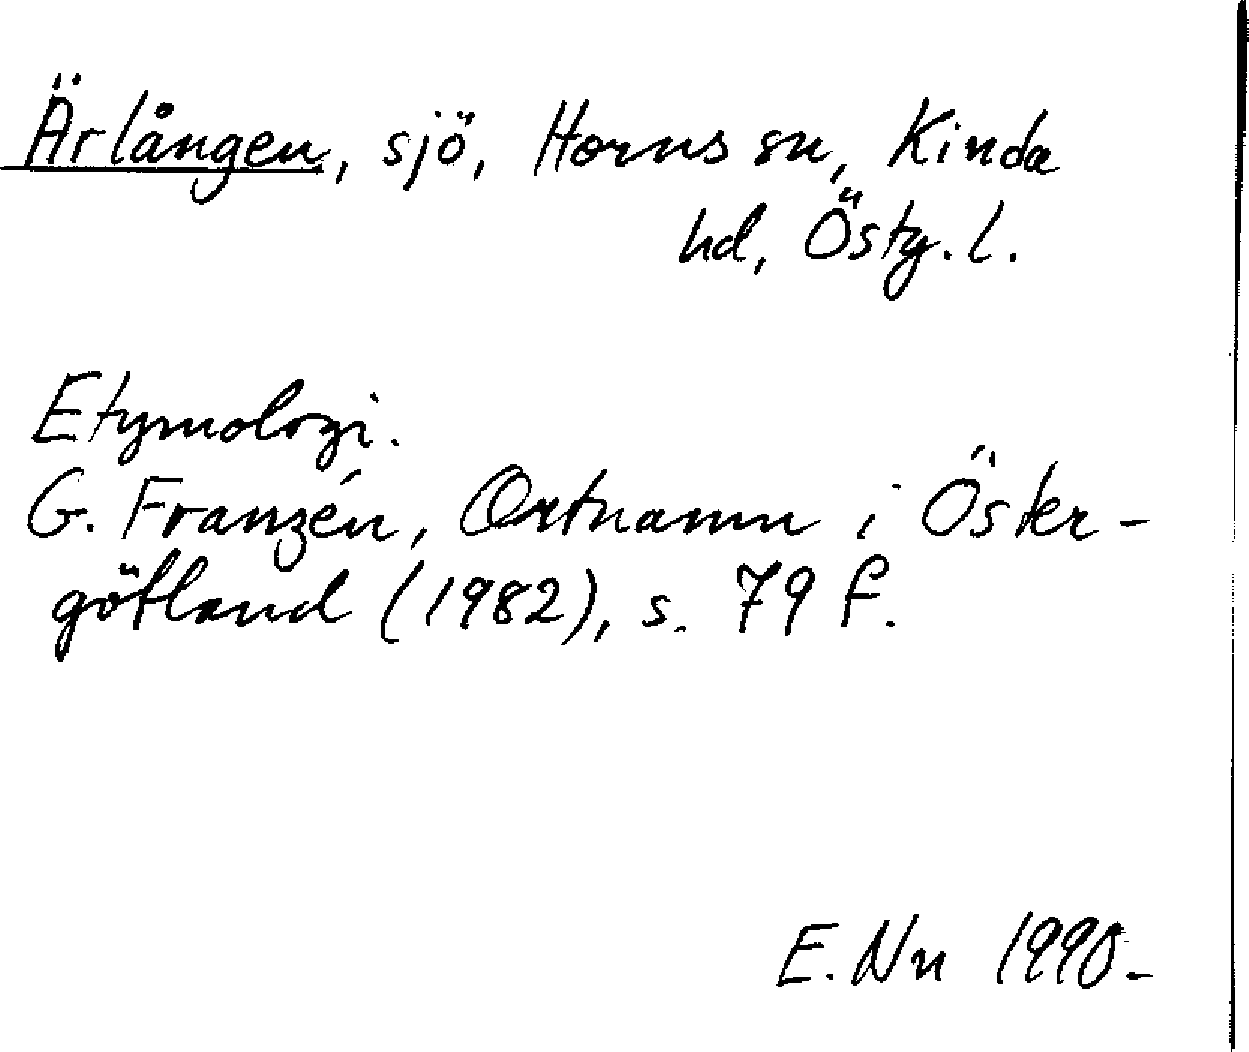 Ärlången, sjö, Horns sn, Kinda
hd, Östg. l.
Etymologi.
G. Franzén, Ortnamn i Öster-
götland (1982), s. 79 f.
E. Nn 1990-